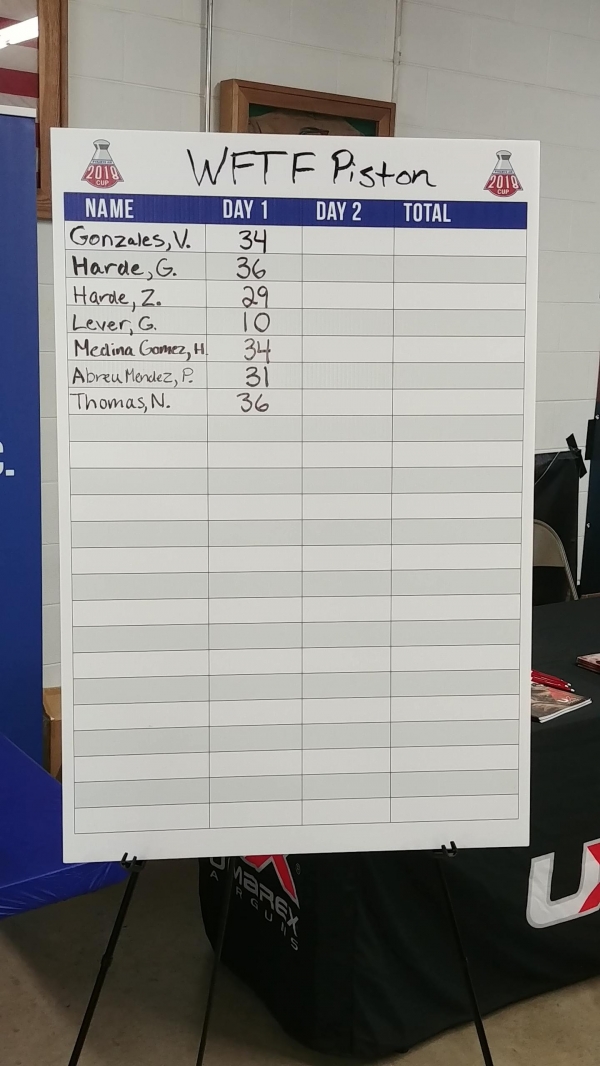 2018
CUP
WFTF Piston
2018
CUP
NAME DAY 1 DAY 2 TOTAL
Gonzales, V. 34
Harde, G. 36
Harde, Z. 29
Lever, G. 10
Medina Gomez, H. 34
Abreu Mendez, P. 31
Thomas, N. 36
C.
UMAREX
AIRGUNS
UX